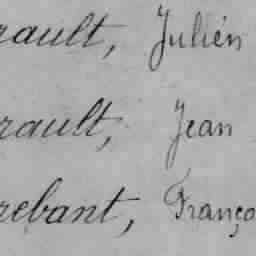 rault, Julien
rault, Jean
rebant, Franço